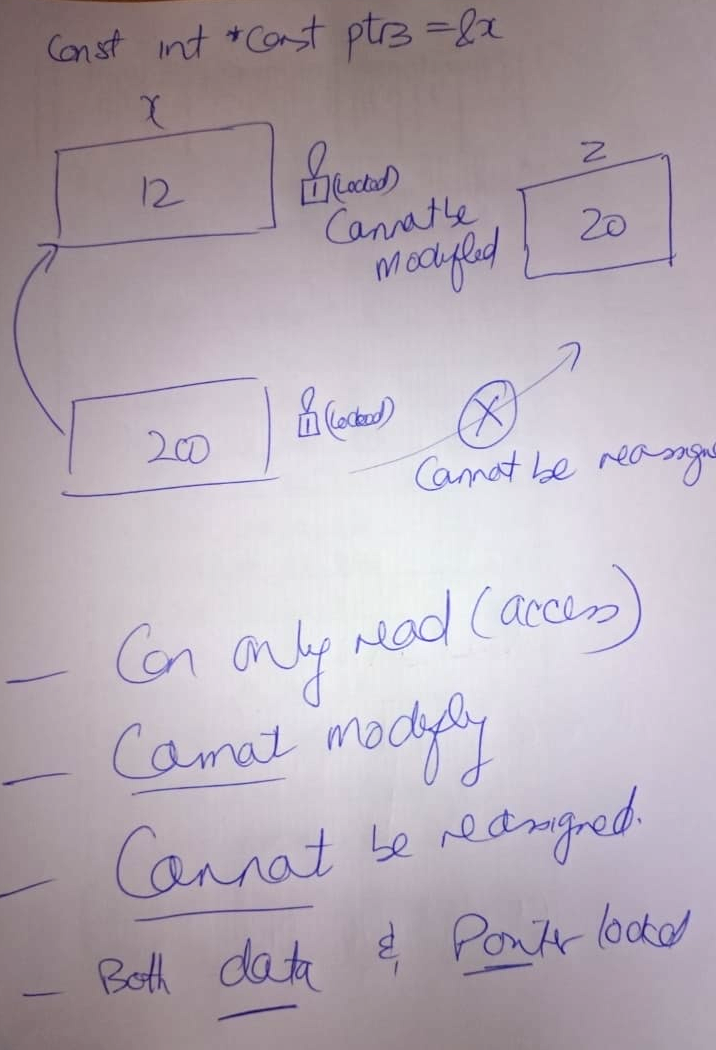 Const int *Const ptr3 = &x
x
12
(Locked)
Cannot be
modified
z
20
200
(Locked)
X
Cannot be reassigne
— Can only read (access)
— Cannot modify
— Cannot be reassigned.
— Both data & Pointer locked